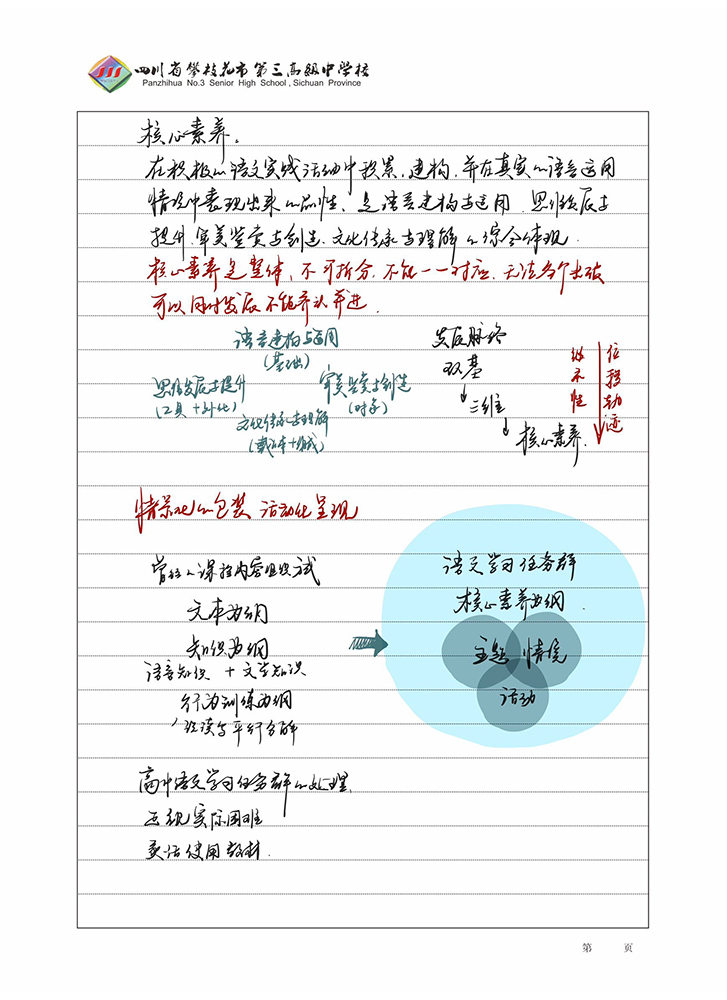 四川省攀枝花市第三高级中学校
Panzhihua No.3 Senior High School , Sichuan Province
核心素养。
在积极的语文实践活动中积累、建构，并在真实的语言运用
情境中表现出来的品性，是语言建构与运用、思维发展与
提升、审美鉴赏与创造、文化传承与理解的综合体现
核心素养是整体，不可拆分，不能一一对应，无法各个出破
可以同时发展不能齐头并进
语言建构与运用
(基础)
思维发展与提升
(工具+外化)
审美鉴赏与创造
(对象)
文化传承与理解
发展脉络
双基
↓三维
↓核心素养.
纵不性
位移轨迹
情景化的包装 活动化呈现
常规的课程内容组织方式
文本为纲
知识为纲
语言知识 + 文学知识
行为训练为纲
阅读与平行分解
语文学习任务群
核心素养为纲
主题 情境
活动
高中语文学习任务群的处理
正视实际困难
灵活使用教材.
第 页